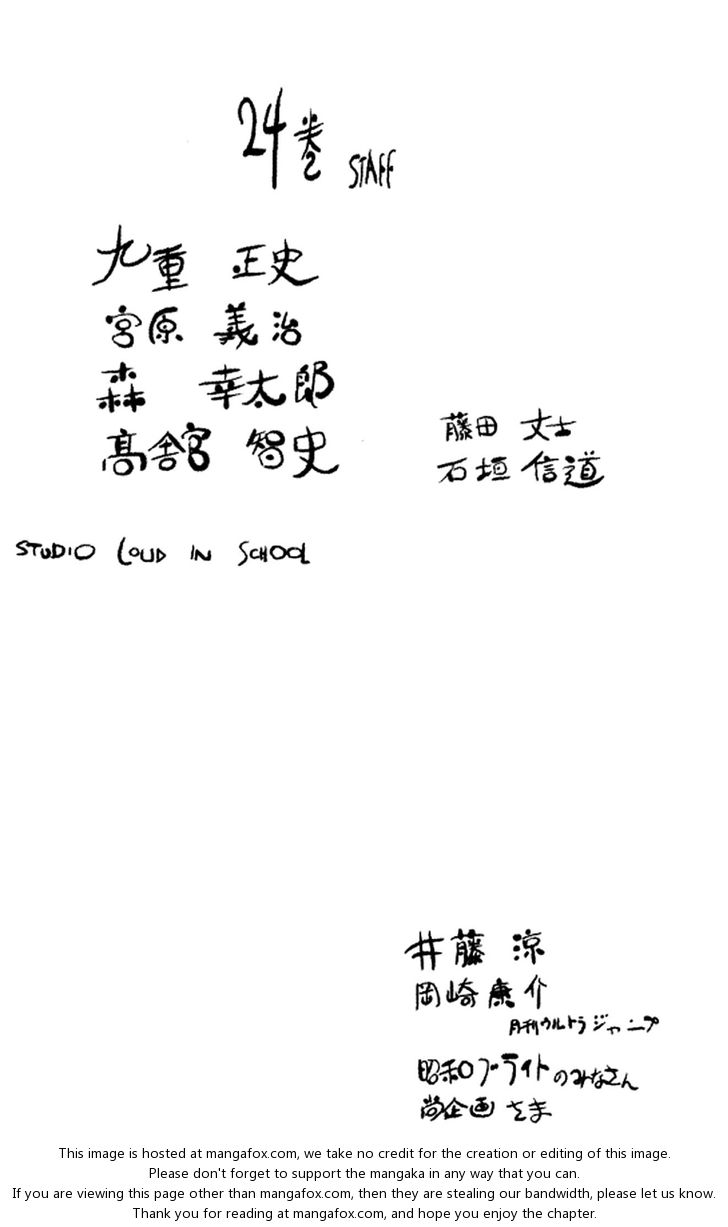 24巻 STAFF
九重 正史
宮原 義治
森 幸太郎
髙舎宮 智史
藤田 丈士
石垣 信道
STUDIO LOUD IN SCHOOL
井藤 涼
岡崎 康介
月刊ウルトラジャンプ
昭和ブライトのみなさん
尚企画 さま
This image is hosted at mangafox.com, we take no credit for the creation or editing of this image.
Please don't forget to support the mangaka in any way that you can.
If you are viewing this page other than mangafox.com, then they are stealing our bandwidth, please let us know.
Thank you for reading at mangafox.com, and hope you enjoy the chapter.